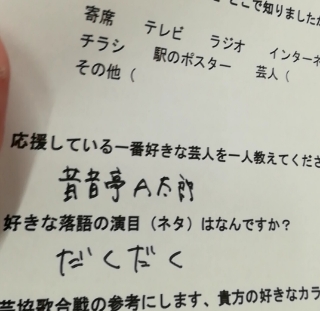 どこで知りましたか
寄席 テレビ ラジオ インターネ
チラシ 駅のポスター 芸人（
その他（
応援している一番好きな芸人を一人教えてくださ
昔昔亭A太郎
好きな落語の演目（ネタ）はなんですか？
だくだく
芸協歌合戦の参考にします、貴方の好きなカラ